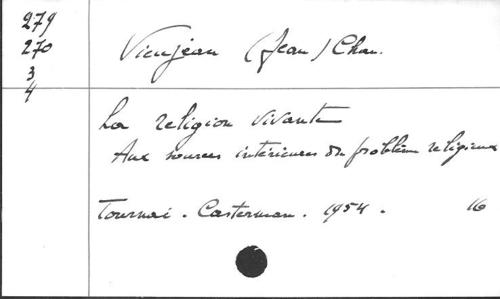 279
270
3
4
Vieujean (Jean) Chan.
La religion vivante
Aux sources intérieures du problème religieux
Tournai. Casterman. 1954. 16